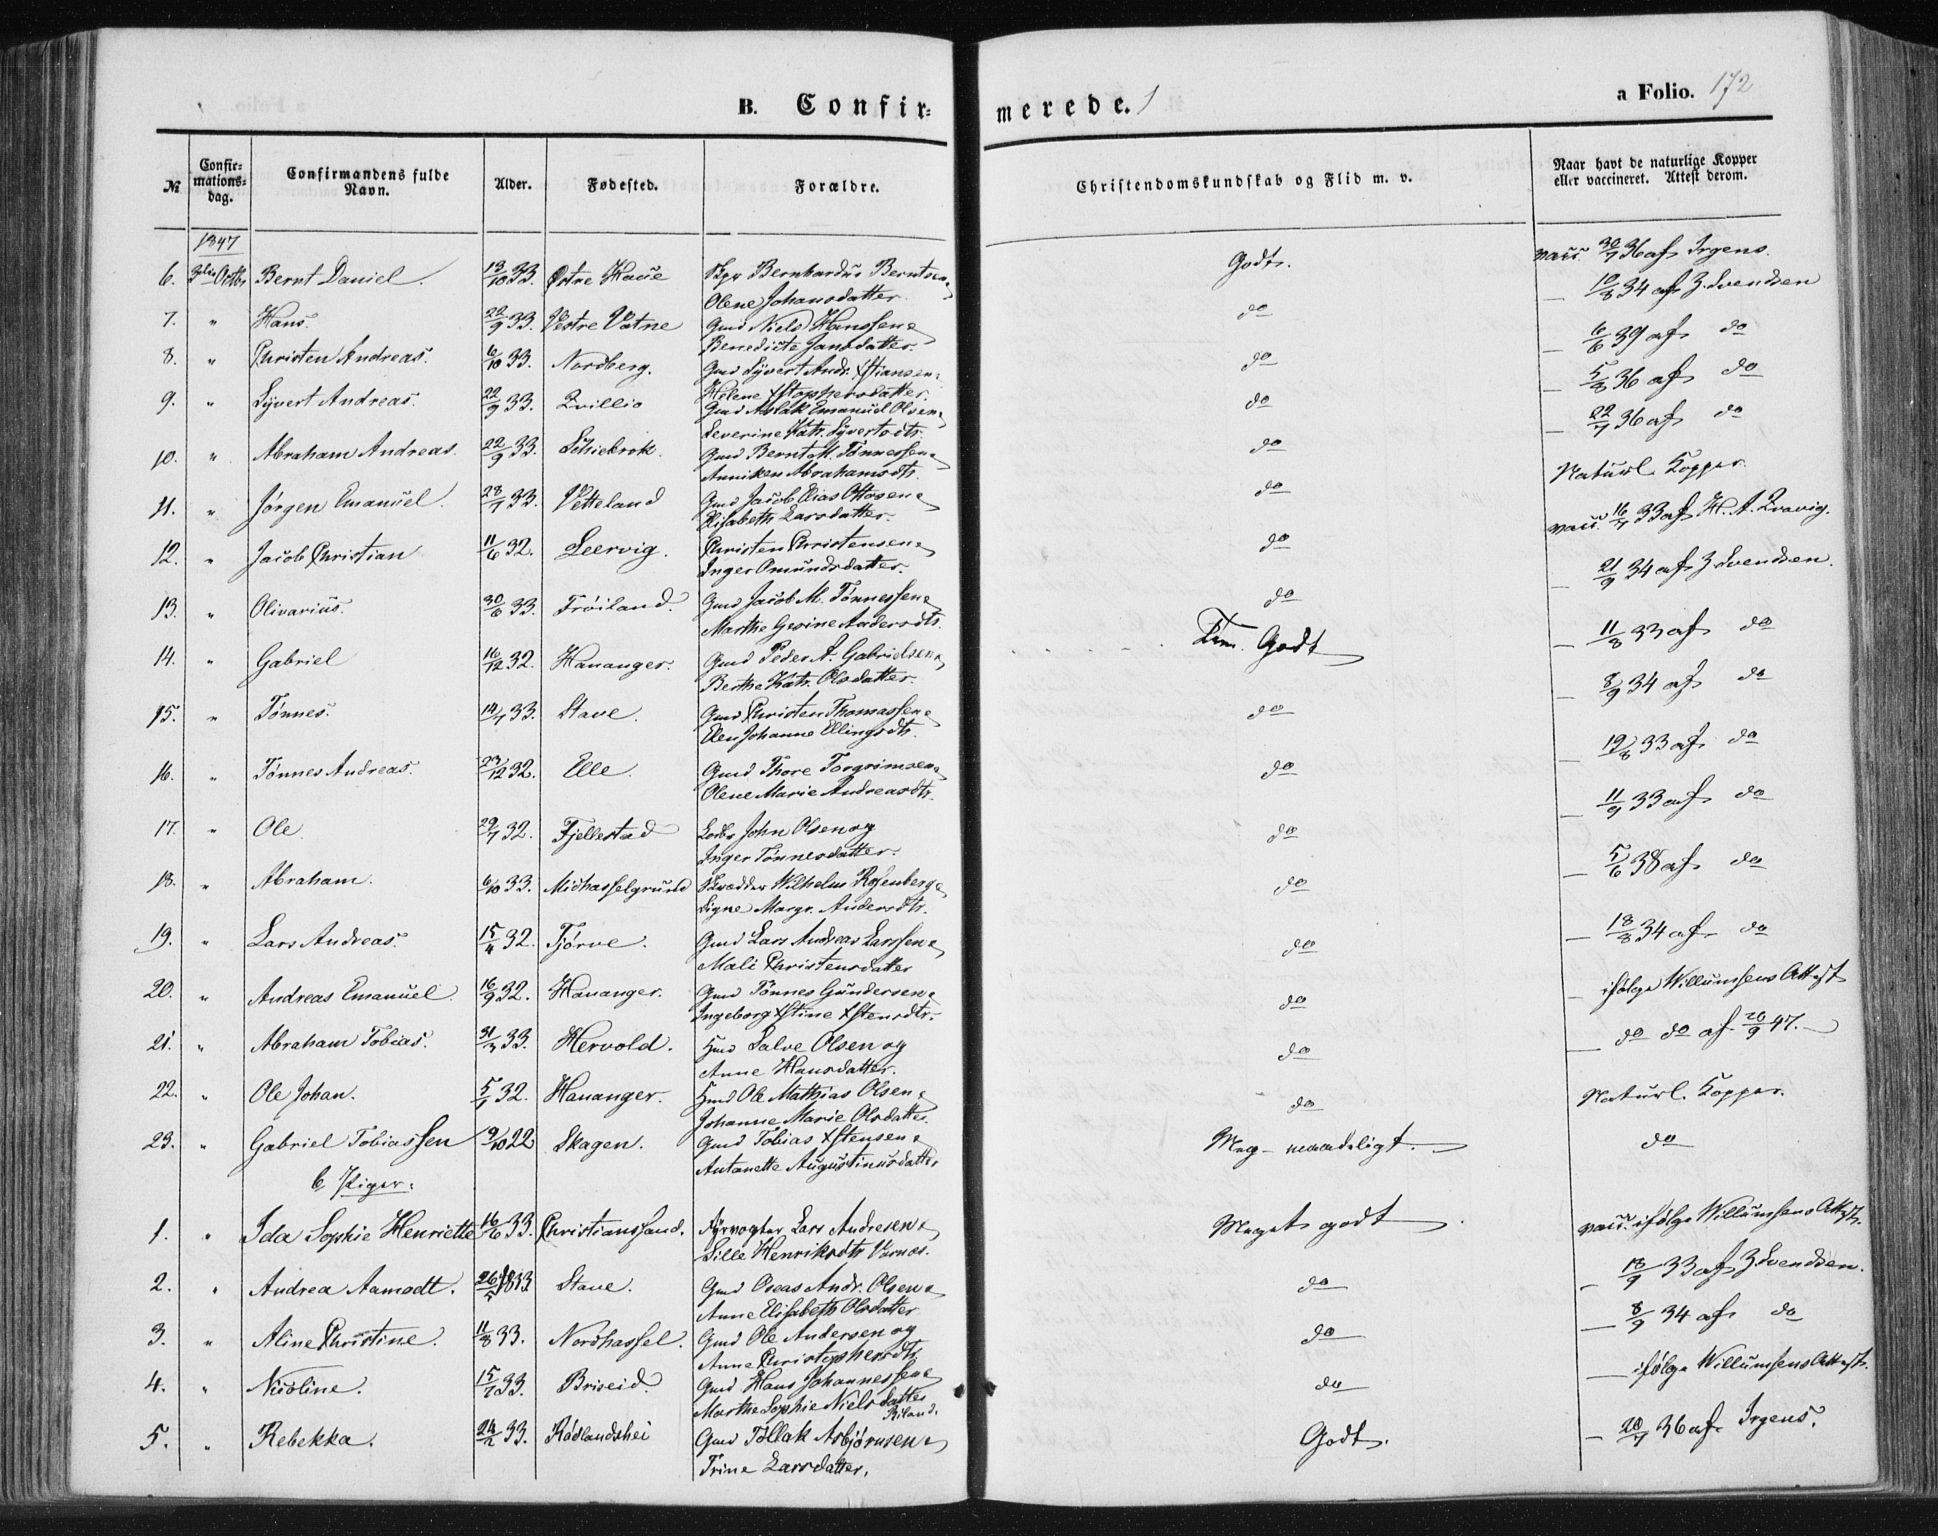 B. Confir= merede. 1
a Folio. 172
№ Confir=mations=dag. Confirmandens fulde Navn. Alder. Fødested. Forældre. Christendomskundskab og Flid m. v. Naar havt de naturlige Kopper eller vaccineret. Attest derom.
1847
6. 3die Octbr Bernt Daniel. 13/10 33. Østre Haue Bernhardus Berntsen Godt. vacc. 30/7 36 af Irgens.
Olene Johansdatter.
7. " Hans. 22/9 33. Vestre Vatne Gmd Niels Hanssen & do — 10/8 34 af Z. Svendsen
Benedicte Jansdatter.
8. " Christen Andreas. 6/10 33. Nordberg. Gmd Syvert Andr. Xstiansen & do — 6/6 39 af do
Helene Xstophersdatter.
9. " Syvert Andreas. 22/9 33. Qvillio Gmd Aslak Emanuel Olsen & do — 5/8 36 af do
Severine Katr. Syvertsdtr.
10. " Abraham Andreas. 22/9 33. Schiebrok. Gmd Bernt M. Tønnessen & do — 22/7 36 af do
Anniken Abrahamsdtr.
11. " Jørgen Emanuel. 28/7 33. Vetteland Gmd Jacob Elias Ottosen & do Naturl. Kopper.
Elisabeth Larsdatter.
12. " Jacob Christian 11/6 32. Leervig. Christen Christensen & do vacc. 16/7 33 af H. A. Qvavig.
Inger Omundsdatter.
13. " Olivarius. 30/6 33. Frøiland. Gmd Jacob M. Tønnessen & do — 21/9 34 af Z. Svendsen.
Marthe Gesine Andersdtr.
14. " Gabriel 16/12 32. Hananger. Gmd Peder A. Gabrielsen & Tem. Godt — 11/8 33 af do
Berthe Katr. Olsdatter.
15. " Tønnes. 14/7 33. Stave. Gmd Christen Thomassen & do — 8/9 34 af do
Elen Johanne Ellingsdtr.
16. " Tønnes Andreas. 23/12 32. Elle. Gmd Thore Torgrimsen & do — 19/8 33 af do
Olene Marie Andreasdtr.
17. " Ole 29/7 32. Fjellestad John Olsen og do — 11/9 33 af do
Inger Tønnesdatter.
18. " Abraham. 6/10 33. Midhasselgrund Skrædder Wilhelm Rosenberg & do — 5/6 38 af do
Signe Margr. Andersdtr.
19. " Lars Andreas. 15/4 32. Tjørve. Gmd Lars Andreas Larssen & do — 18/8 34 af do
Mali Christensdatter
20. " Andreas Emanuel. 16/9 32. Hananger. Gmd Tønnes Gundersen & do — ifølge Willumsens Attest
Ingeborg Xstine Xstensdtr.
21. " Abraham Tobias. 31/3 33. Hervold. Hmd Salve Olsen og do — do do af 20/9 47.
Anne Hansdatter.
22. " Ole Johan. 5/1 32. Hananger. Hmd Ole Mathias Olsen & do Naturl. Kopper.
Johanne Marie Olsdatter.
23. " Gabriel Tobiassen 9/10 22 Skagen. Gmd Tobias Xstensen & Meg. maadeligt. do
Antonette Augustinusdatter
b, Piger.
1. " Ida Sophie Henriette 16/6 33. Christianssand. Fyrvogter Lars Andresen & Meget godt vacc. ifølge Willumsens Attest.
Sille Henriksdtr Varnæs.
2. " Andrea Aamodt. 26/5 1833 Stave. Gmd Oseas Andr. Olsen & do — 18/9 33 af Z. Svendsen.
Anne Elisabeth Olsdatter
3. " Aline Christine. 11/8 33. Nordhassel. Gmd Ole Andersen og do — 8/9 34 af do
Anne Christophersdtr.
4. " Nicoline. 15/7 33. Briseid. Gmd Hans Johannessen & do — ifølge Willumsens Attest.
Marthe Sophie Nielsdatter Riland.
5. " Rebekka. 24/2 33. Rødlandshei Gmd Tollak Asbjørnsen & Godt. — 20/7 36 af Irgens.
Trine Larsdatter.